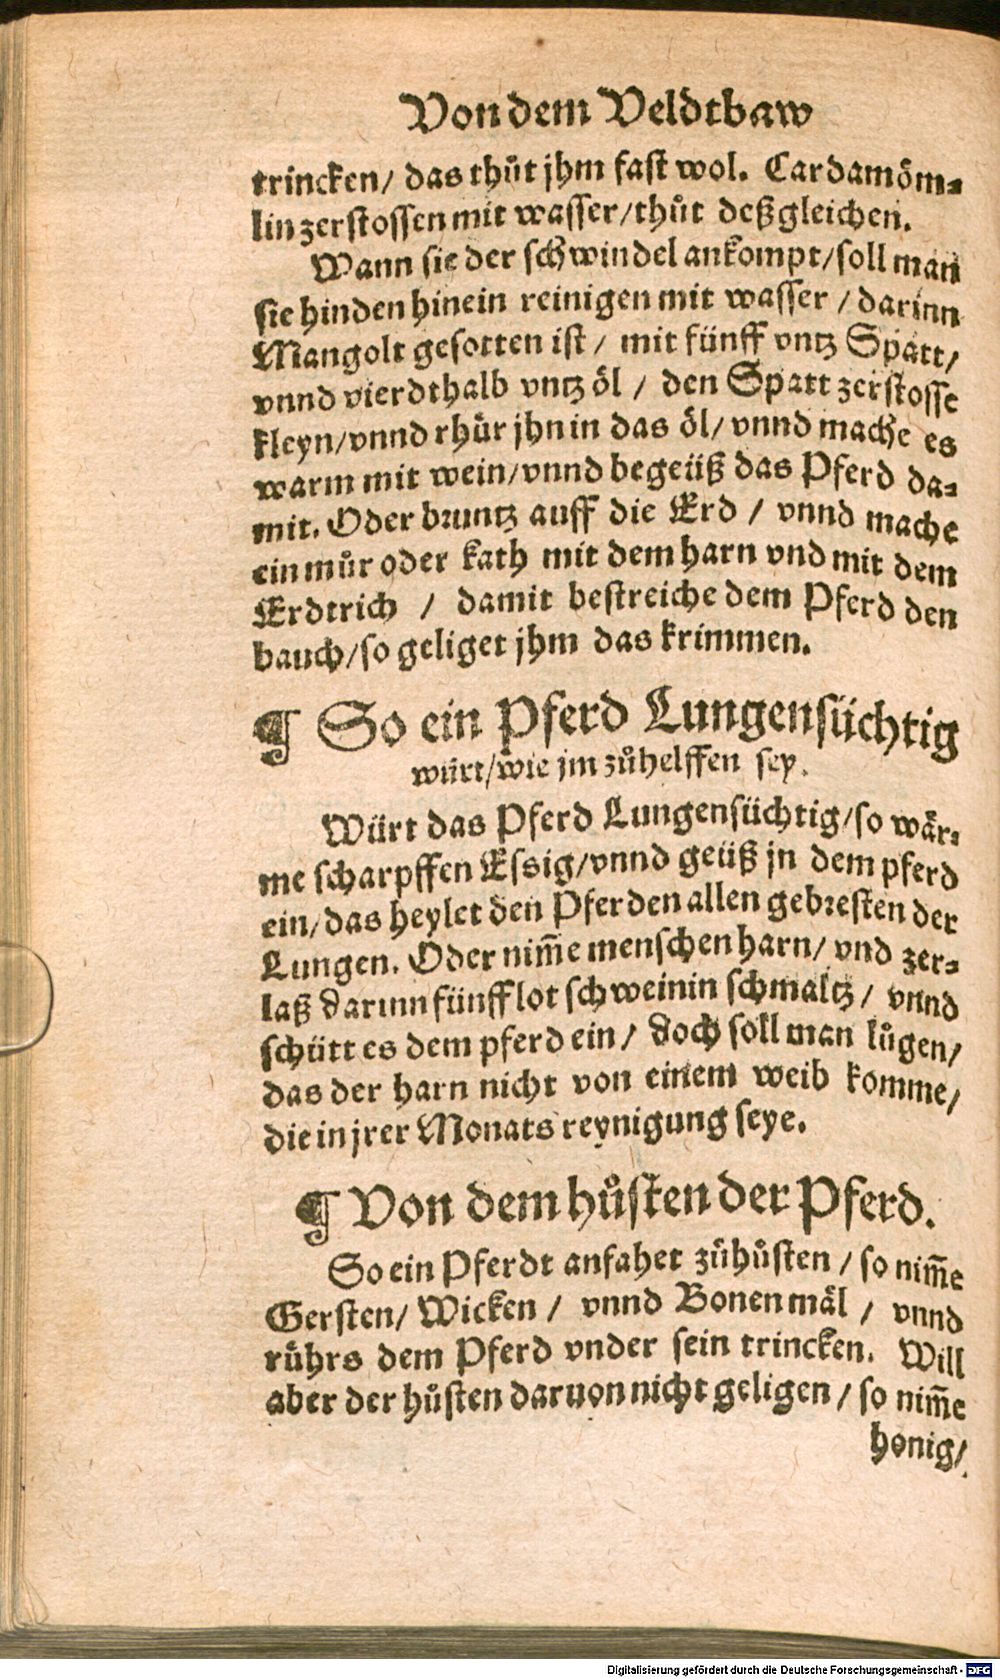 Von dem Veldtbaw
trincken/ das thůt jhm fast wol. Cardamöm-
lin zerstossen mit wasser/thůt deßgleichen.
Wann sie der schwindel ankompt/soll man
sie hinden hinein reinigen mit wasser / darinn
Mangolt gesotten ist / mit fünff vntz Spatt/
vnnd vierdthalb vntz öl / den Spatt zerstosse
kleyn/vnnd rhůr jhn in das öl/ vnnd mache es
warm mit wein/vnnd begeüß das Pferd da-
mit. Oder bruntz auff die Erd / vnnd mache
ein můr oder kath mit dem harn vnd mit dem
Erdtrich / damit bestreiche dem Pferd den
bauch/so geliget jhm das krimmen.
¶ So ein Pferd Lungensüchtig
würt/wie jm zůhelffen sey.
Würt das Pferd Lungensüchtig/so wär-
me scharpffen Essig/vnnd geüß jn dem pferd
ein/das heylet den Pferden allen gebresten der
Lungen. Oder nim̃e menschen harn/ vnd zer-
laß darinn fünff lot schweinin schmaltz / vnnd
schütt es dem pferd ein / doch soll man lůgen/
das der harn nicht von einem weib komme/
die in jrer Monats reynigung seye.
¶ Von dem hůsten der Pferd.
So ein Pferdt anfahet zůhůsten / so nim̃e
Gersten/ Wicken / vnnd Bonen mäl / vnnd
rührs dem Pferd vnder sein trincken. Will
aber der hůsten daruon nicht geligen / so nim̃e
honig/
Digitalisierung gefördert durch die Deutsche Forschungsgemeinschaft - DFG